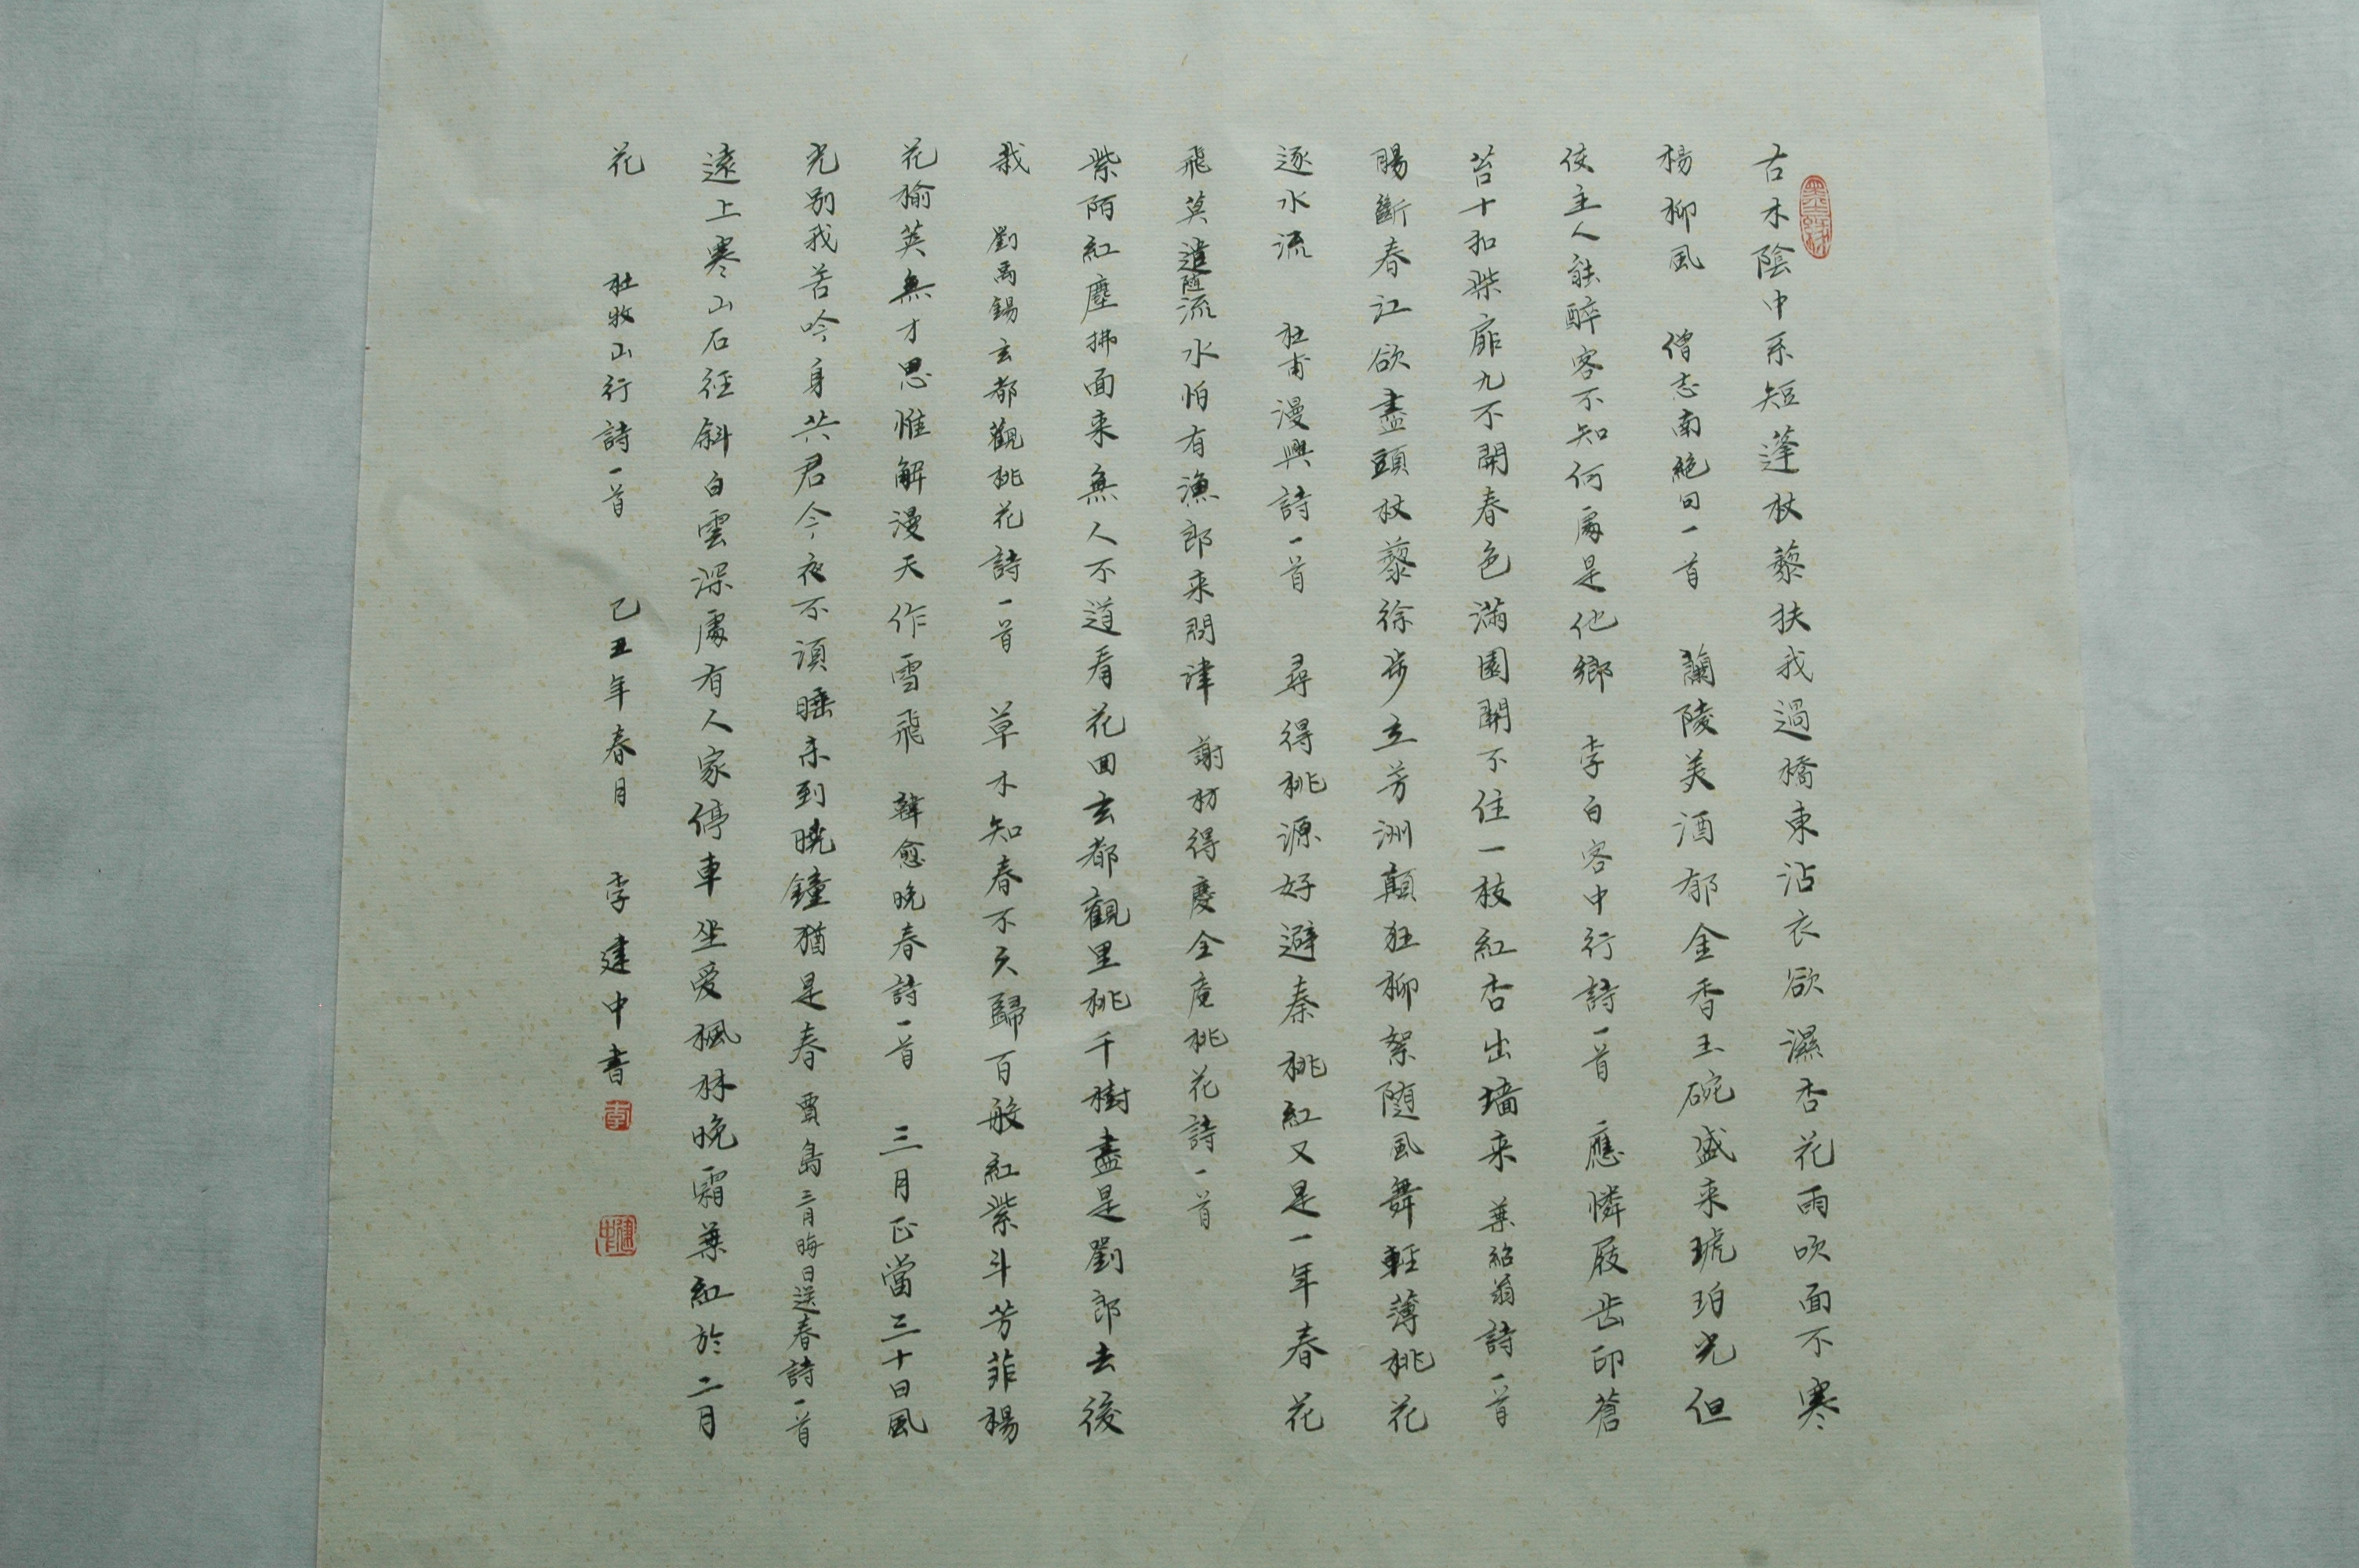 古木陰中系短蓬杖藜扶我過橋東沾衣欲濕杏花雨吹面不寒
楊柳風 僧志南絕句一首 蘭陵美酒郁金香玉碗盛来琥珀光但
使主人能醉客不知何處是他鄉 李白客中行詩一首 應憐屐齿印蒼
苔十扣柴扉九不開春色滿園關不住一枝紅杏出墙来 葉紹翁詩一首
腸斷春江欲盡頭杖藜徐步立芳洲顛狂柳絮随風舞輕薄桃花
逐水流 杜甫漫興詩一首 尋得桃源好避秦桃紅又是一年春花
飛莫遣隨流水怕有漁郎来問津 謝枋得慶全庵桃花詩一首
紫陌紅塵拂面来無人不道看花回玄都觀里桃千樹盡是劉郎去後
栽 劉禹錫玄都觀桃花詩一首 草木知春不久歸百般紅紫斗芳菲楊
花榆荚無才思惟解漫天作雪飛 韓愈晚春詩一首 三月正當三十日風
光别我苦吟身共君今夜不須睡未到曉鐘猶是春 賈島三月晦日送春詩一首
遠上寒山石徑斜白雲深處有人家停車坐愛楓林晚霜葉紅於二月
花 杜牧山行詩一首 己丑年春月 李建中書
李
建中